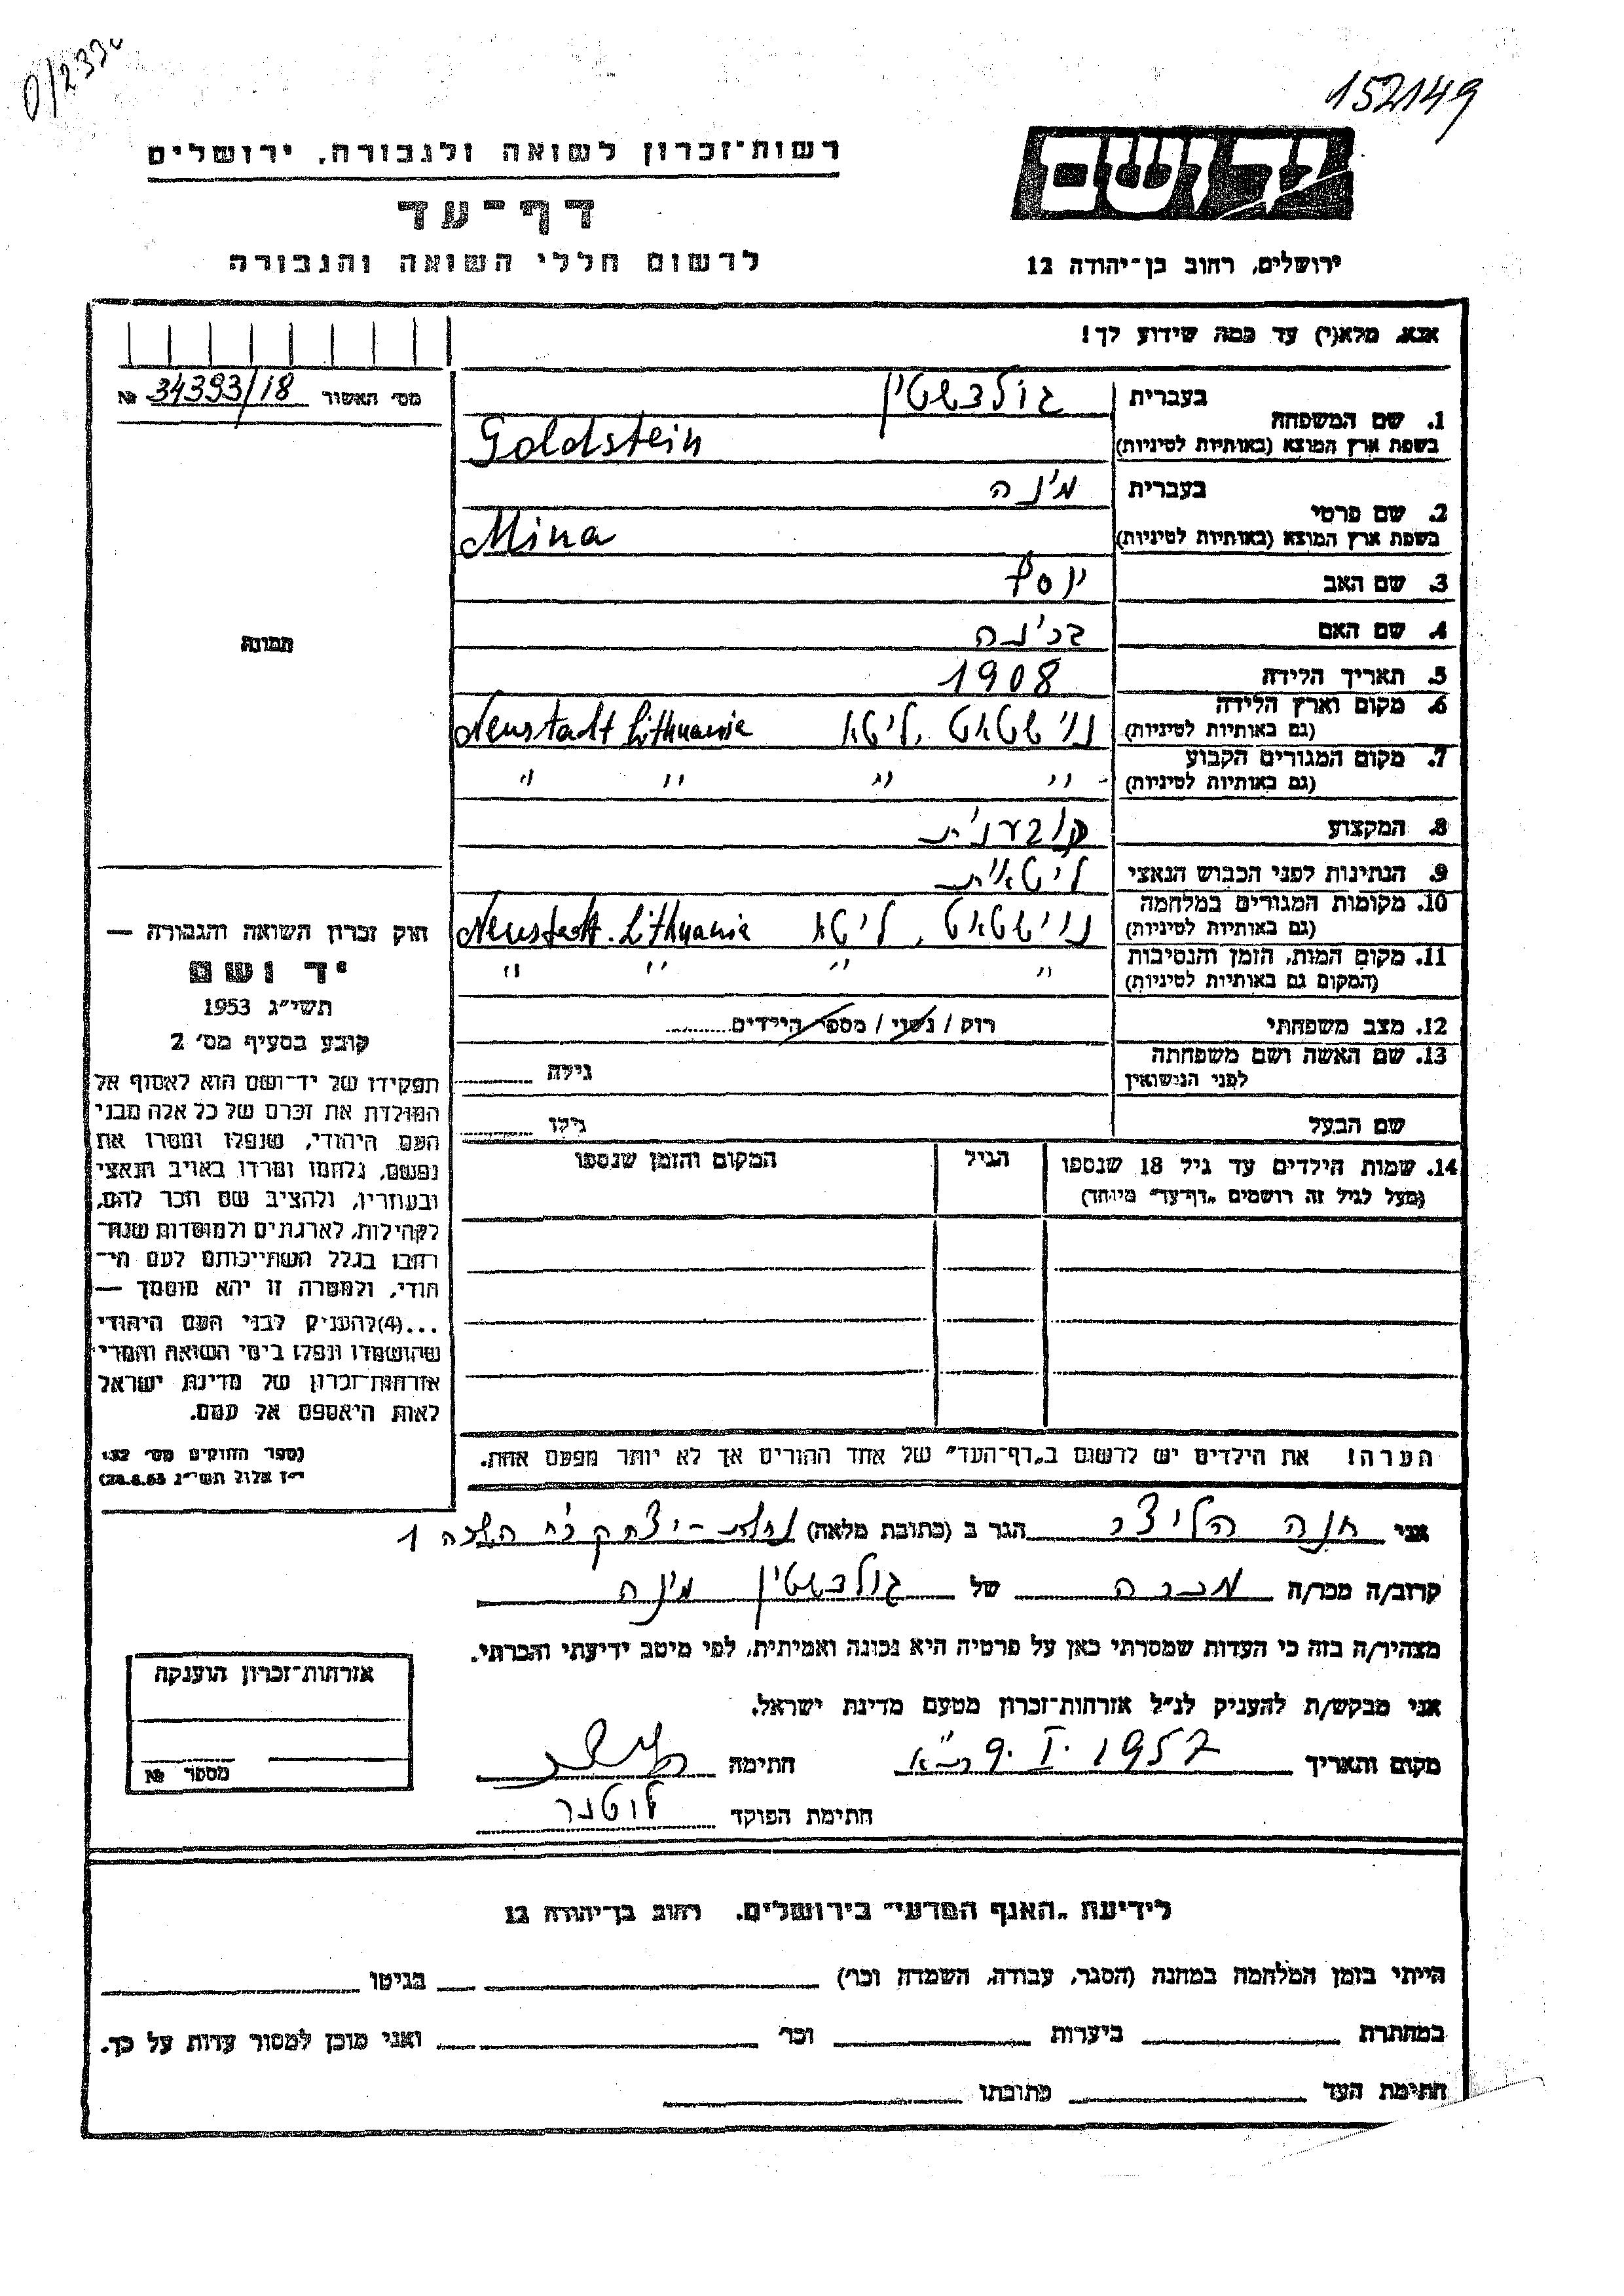 152149
רשות־זכרון לשואה ולגבורה, ירושלים
דף־עד
לרשום חללי השואה והגבורה
יד ושם
ירושלים, רחוב בן־יהודה 12
אנא, מלא(י) עד כמה שידוע לך!
מס׳ האשור 34393/18 №
1. שם המשפחה בעברית גולדשטיין
בשפת ארץ המוצא (באותיות לטיניות) Goldstein
2. שם פרטי בעברית מינה
בשפת ארץ המוצא (באותיות לטיניות) Mina
3. שם האב יוסף
4. שם האם
5. תאריך הלידה 1908
6. מקום וארץ הלידה
(גם באותיות לטיניות) ניישטאט, ליטא Neustadt Lithuania
7. מקום המגורים הקבוע
(גם באותיות לטיניות) " " " "
8. המקצוע כובענית
9. הנתינות לפני הכבוש הנאצי ליטאית
10. מקומות המגורים במלחמה
(גם באותיות לטיניות) ניישטאט, ליטא Neustadt. Lithuania
11. מקום המות, הזמן והנסיבות
(המקום גם באותיות לטיניות) " " " "
12. מצב משפחתי רוק / נשוי / מספר הילדים
13. שם האשה ושם משפחתה
לפני הנישואין גילה
שם הבעל גילו
14. שמות הילדים עד גיל 18 שנספו הגיל המקום והזמן שנספו
(מעל לגיל זה רושמים „דף־עד" מיוחד)
הערה! את הילדים יש לרשום ב„דף־העד" של אחד ההורים אך לא יותר מפעם אחת.
תמונה
חוק זכרון השואה והגבורה —
יד ושם
תשי"ג 1953
קובע בסעיף מס׳ 2
תפקידו של יד־ושם הוא לאסוף אל
המולדת את זכרם של כל אלה מבני
העם היהודי, שנפלו ומסרו את
נפשם, נלחמו ומרדו באויב הנאצי
ובעוזריו, ולהציב שם וזכר להם,
לקהילות, לארגונים ולמוסדות שנח־
רבו בגלל השתייכותם לעם הי־
הודי, ולמטרה זו יהא מוסמך —
...(4)להעניק לבני העם היהודי
שהושמדו ונפלו בימי השואה והמרי
אזרחות־זכרון של מדינת ישראל
לאות היאספם אל עמם.
(ספר החוקים מס׳ 132
י״ז אלול תשי״ג 28.8.53)
אני חנה הגר ב (כתובת מלאה) נחלת־יצחק 1
קרוב/ה מכר/ה מכרה של גולדשטיין מינה
מצהיר/ה בזה כי העדות שמסרתי כאן על פרטיה היא נכונה ואמיתית, לפי מיטב ידיעתי והכרתי.
אני מבקש/ת להעניק לנ"ל אזרחות־זכרון מטעם מדינת ישראל.
מקום ותאריך ת"א 9. I. 1957 חתימה
חתימת הפוקד
אזרחות־זכרון הוענקה
מספר №
לידיעת „האגף המדעי" בירושלים, רחוב בן־יהודה 12
הייתי בזמן המלחמה במחנה (הסגר, עבודה, השמדה וכו׳) בגיטו
במחתרת ביערות וכו׳ ואני מוכן למסור עדות על כך.
חתימת העד כתובתו